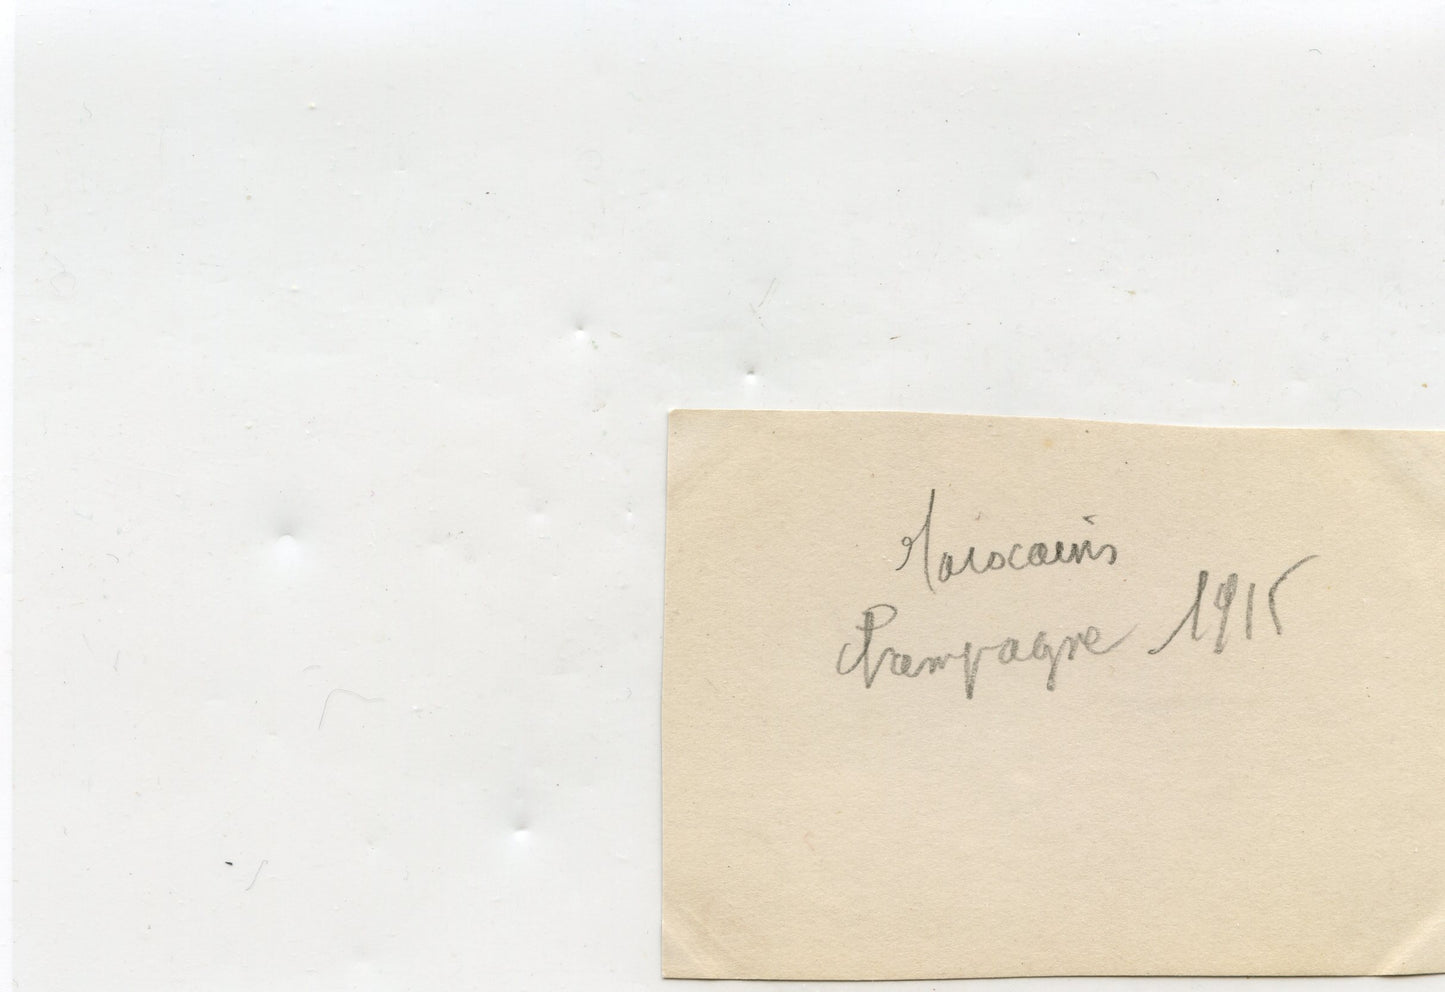 Marocains
Champagne 1915